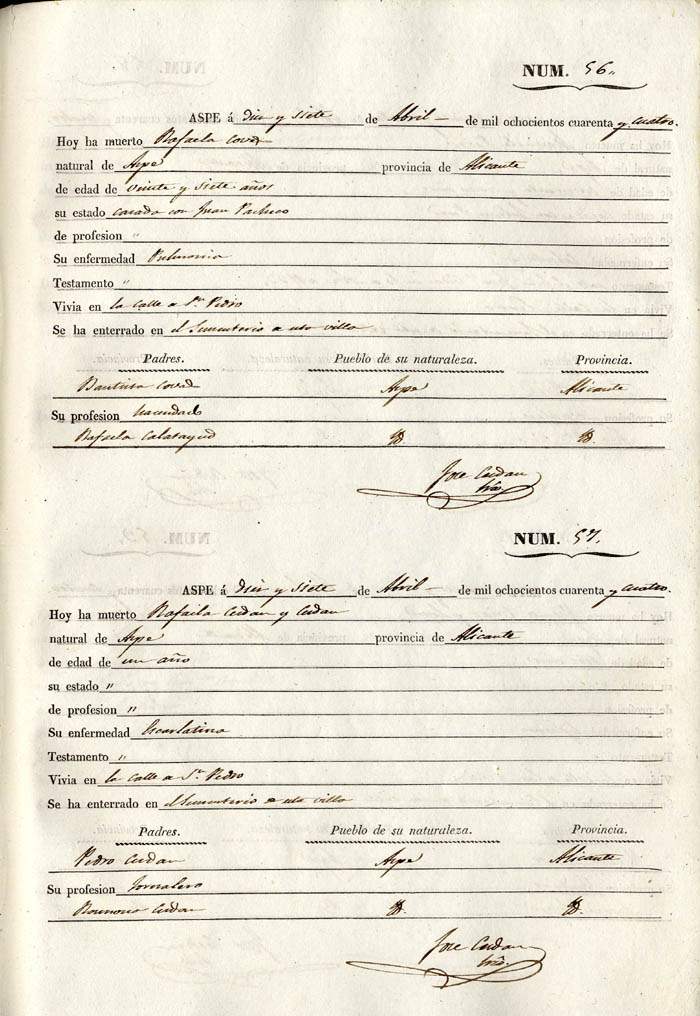 NUM. 56.
ASPE á diez y siete de Abril de mil ochocientos cuarenta y cuatro.
Hoy ha muerto Rafaela
natural de Aspe provincia de Alicante
de edad de veinte y siete años
su estado casada con Juan Pacheco
de profesion "
Su enfermedad Pulmonia
Testamento "
Vivia en la calle de Sn. Pedro
Se ha enterrado en el Sementerio de esta villa
Padres. Pueblo de su naturaleza. Provincia.
Bautista Aspe Alicante
Su profesion hacendado
Rafaela Calatayud Yd. Yd.
Jose Cerdan
NUM. 57.
ASPE á diez y siete de Abril de mil ochocientos cuarenta y cuatro.
Hoy ha muerto Rafaela Cerdan y Cerdan
natural de Aspe provincia de Alicante
de edad de un año
su estado "
de profesion "
Su enfermedad Escarlatina
Testamento "
Vivia en la calle de Sn. Pedro
Se ha enterrado en el Sementerio de esta villa
Padres. Pueblo de su naturaleza. Provincia.
Pedro Cerdan Aspe Alicante
Su profesion Jornalero
Cerdan Yd. Yd.
Jose Cerdan